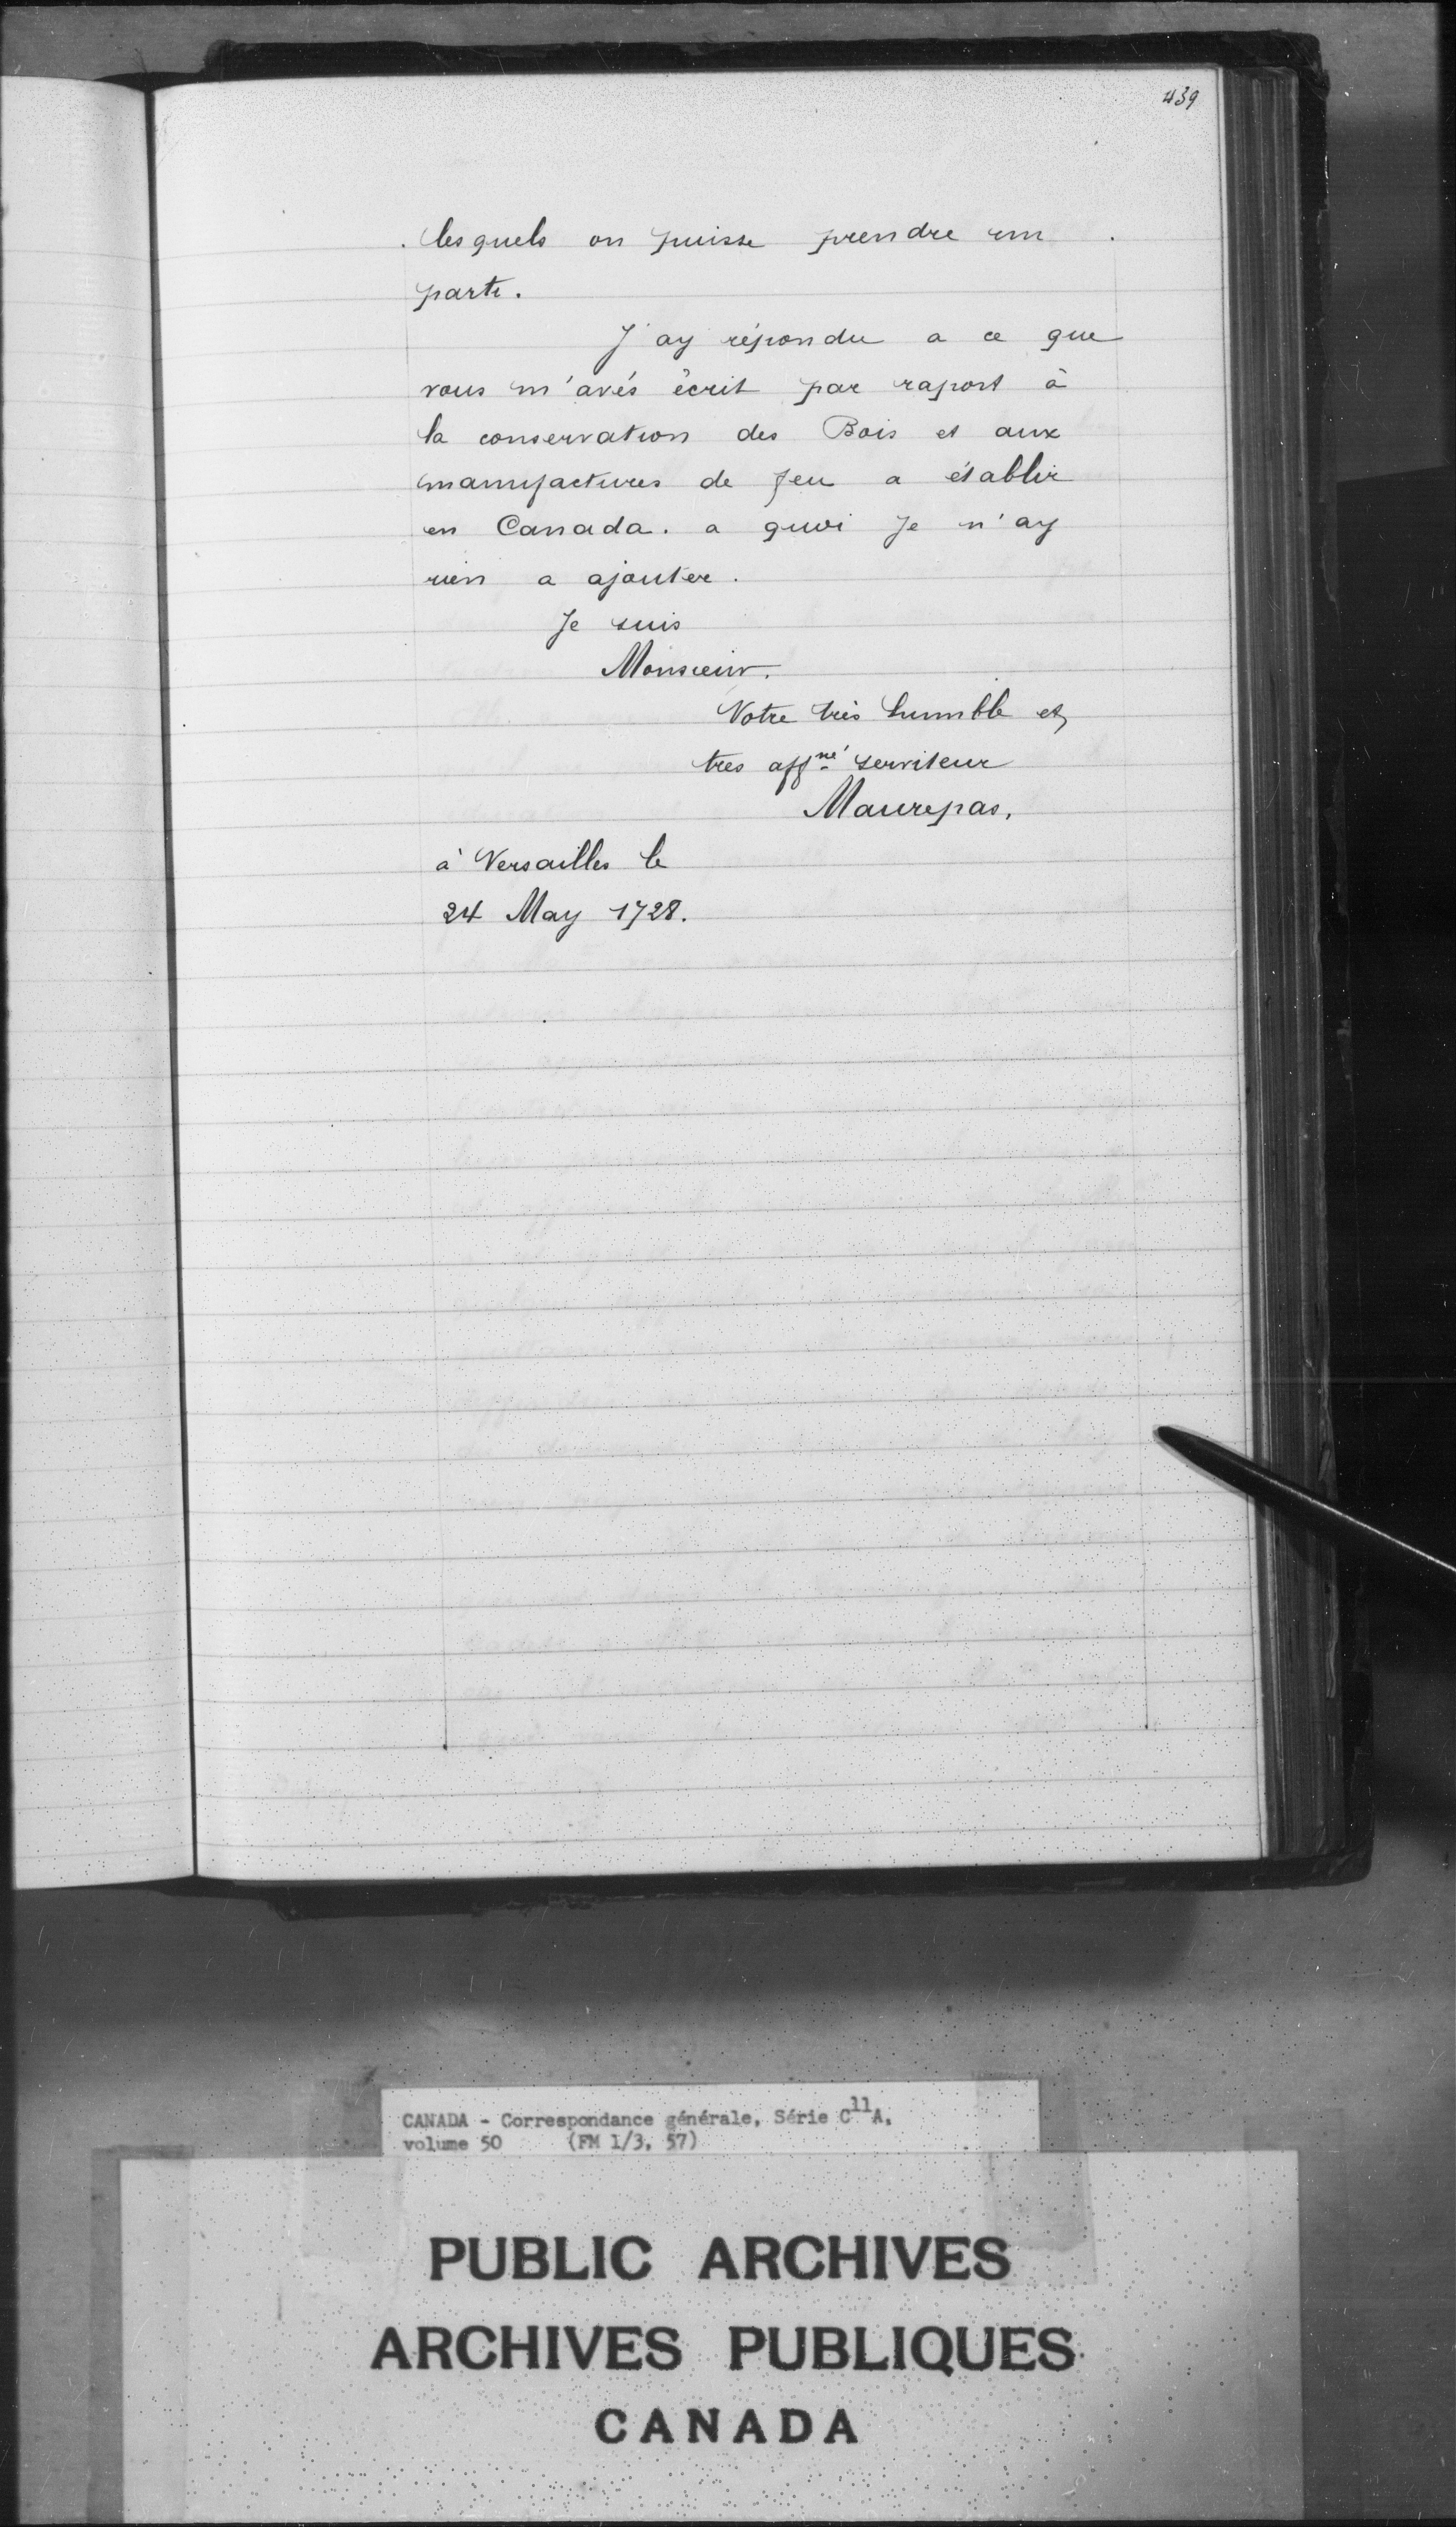 439
lesquels on puisse prendre un
parti.
J'ay répondu a ce que
vous m'avés écrit par raport à
la conservation des Bois et aux
manufactures de feu a établir
en Canada. a quoi Je n'ay
rien a ajouter.
Je suis
Monsieur.
Votre très humble et
tres affné serviteur
Maurepas.
à Versailles le
24 May 1728.
CANADA - Correspondance générale, Série C11A,
volume 50 (FM 1/3, 57)
PUBLIC ARCHIVES
ARCHIVES PUBLIQUES
CANADA